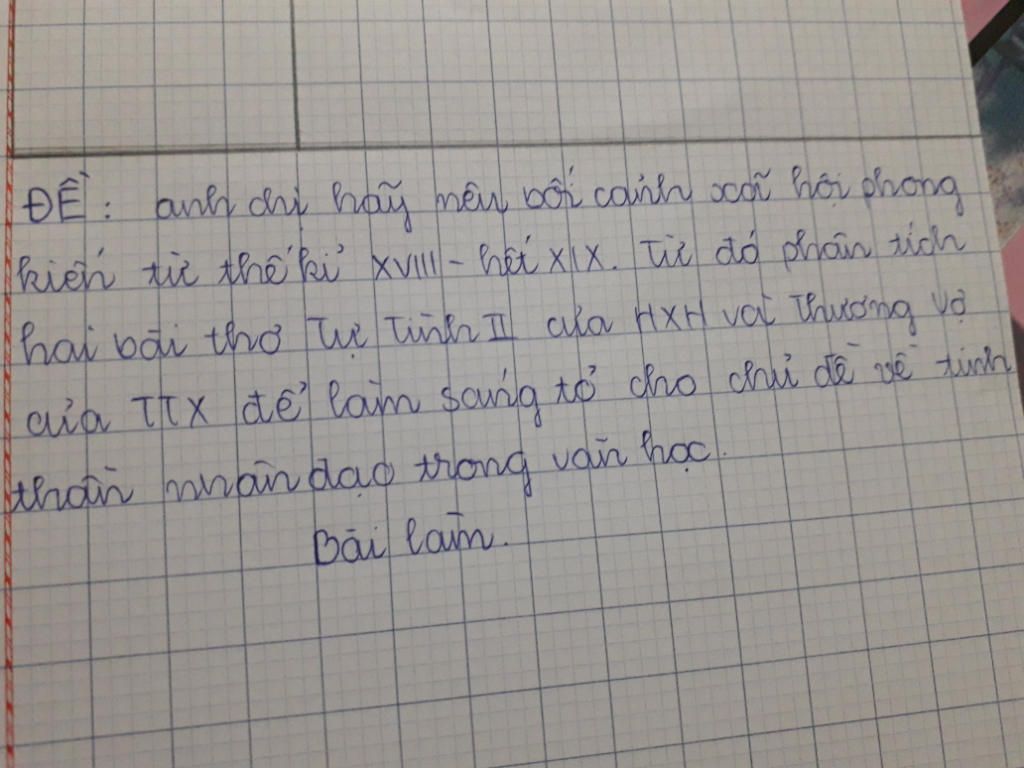 ĐỀ: anh chị hãy nêu bối cảnh xã hội phong
kiến từ thế kỉ XVIII - hết XIX. Từ đó phân tích
hai bài thơ Tự Tình II của HXH và Thương vợ
của TTX để làm sáng tỏ cho chủ đề về tinh
thần nhân đạo trong văn học.
Bài làm.